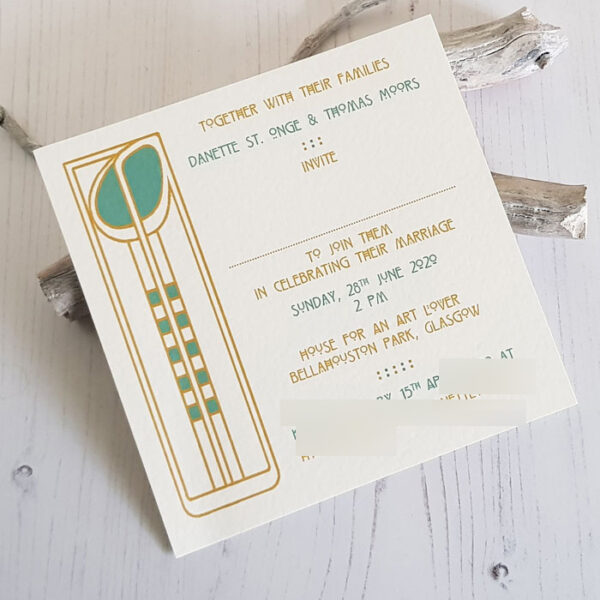 TOGETHER WITH THEIR FAMILIES
DANETTE ST. ONGE & THOMAS MOORS
INVITE
TO JOIN THEM
IN CELEBRATING THEIR MARRIAGE
SUNDAY, 28TH JUNE 2020
2 PM
HOUSE FOR AN ART LOVER
BELLAHOUSTON PARK, GLASGOW
15TH AT